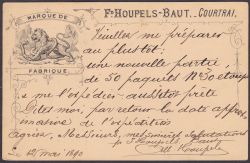 Fs HOUPELS-BAUT.. COURTRAI,
MARQUE DE
FABRIQUE.
Veuillez me préparer
au plus tôt;
une nouvelle partie,
de 50 paquets No 30
à me l'expédier aussitôt prête
Dites moi, par retour la date
de l'expédition
Agréez, Messieurs, mes salutations
12 mai 1890
Houpels